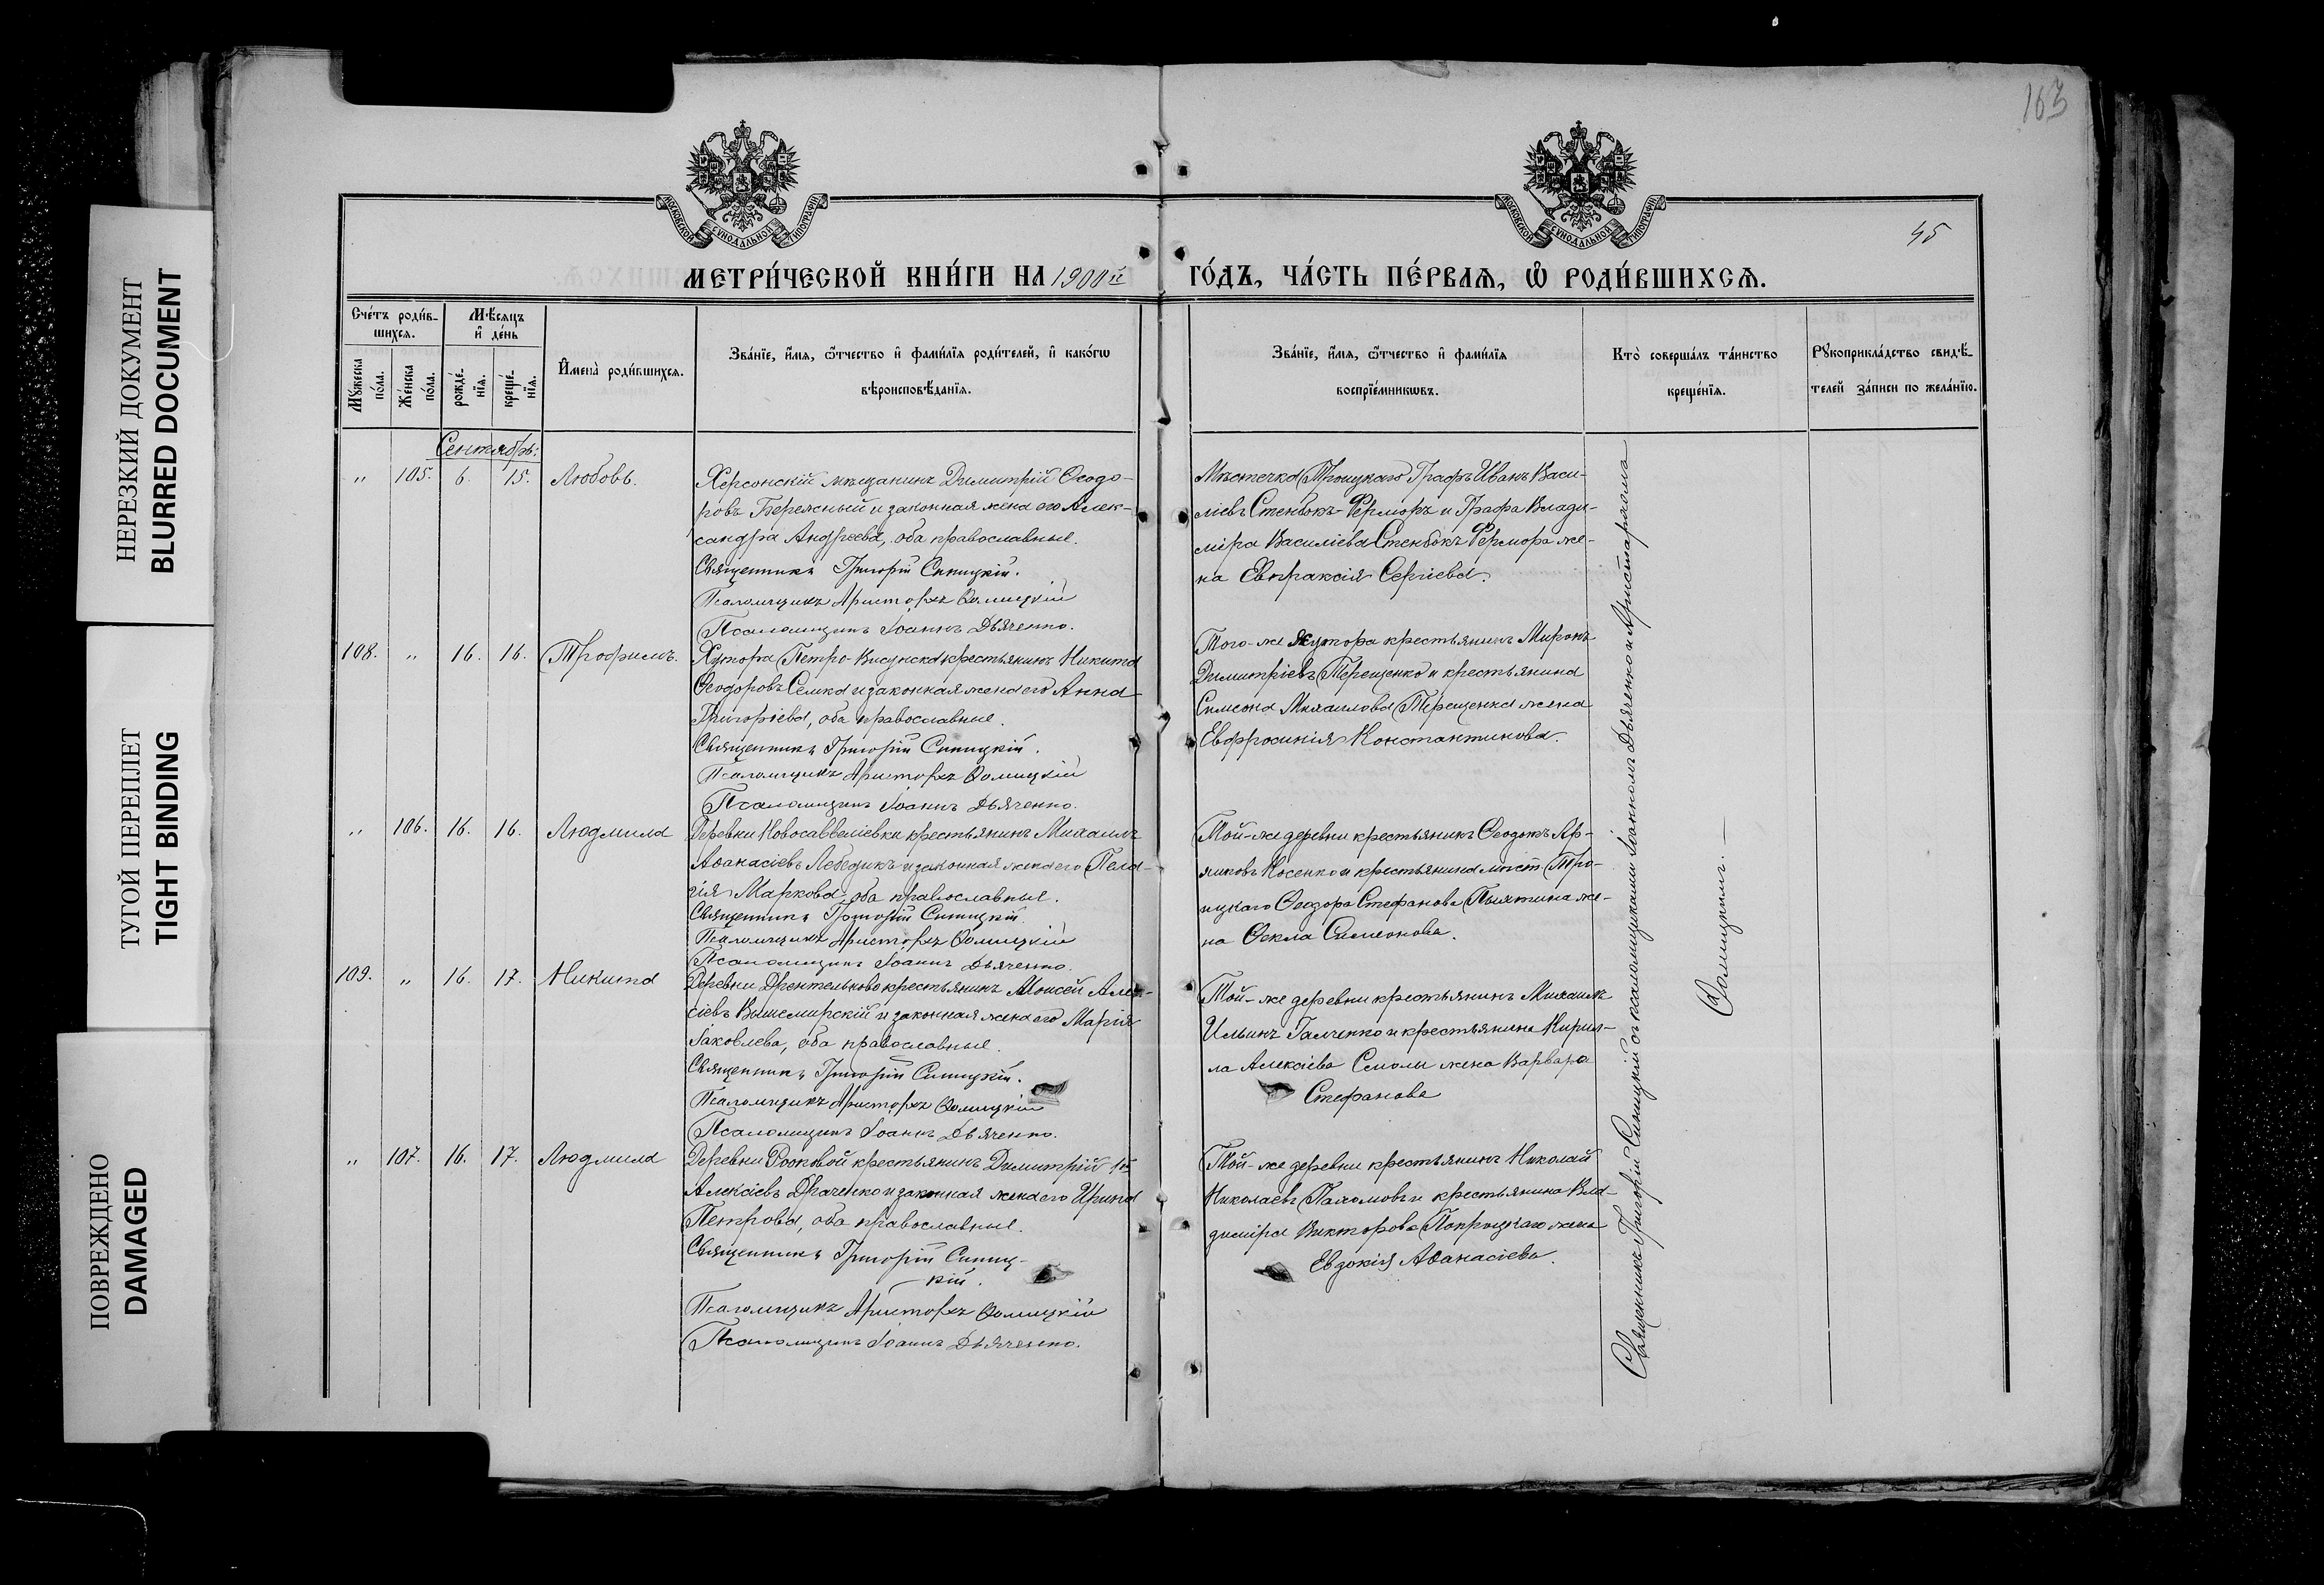 163
НЕРЕЗКИЙ ДОКУМЕНТ
BLURRED DOCUMENT
ТУГОЙ ПЕРЕПЛЕТ
TIGHT BINDING
ПОВРЕЖДЕНО
DAMAGED
МОСКОВСКОЙ СѴНОДАЛЬНОЙ ТИПОГРАФІИ
МОСКОВСКОЙ СѴНОДАЛЬНОЙ ТИПОГРАФІИ
45
МЕТРИ́ЧЕСКОЙ КНИ́ГИ НА 1900й ГО́ДЪ, ЧА́СТЬ ПЕ́РВАѦ, Ѽ РОДИ́ВШИХСѦ.
Сче́тъ роди́в-
шихсѧ.
Мꙋ́жеска по́ла.
Же́нска по́ла.
Мѣ́сѧцъ
и҆ де́нь
рожде́-нїѧ.
креще́-нїѧ.
И҆мена̀ роди́вшихсѧ.
Зва́нїе, и҆́мѧ, ѻ҆́тчество и҆ фами́лїѧ роди́телей, и҆ како́гѡ
вѣроисповѣ́данїѧ.
Зва́нїе, и҆́мѧ, ѻ҆́тчество и҆ фами́лїѧ
воспрїе́мникѡвъ.
Кто̀ соверша́лъ та́инство
креще́нїѧ.
Рꙋкоприкла́дство свидѣ́-
телей за́писи по жела́нїю.
Сентябрь:
" 105. 6. 15. Любовь.
Херсонскій мѣщанинъ Димитрій Ѳеодо-
ровъ Бережный и законная жена его Алек-
сандра Андреева, оба православные.
Священникъ Григорій Синицкій.
Псаломщикъ Аристархъ Ѳомицкій
Псаломщикъ Іоаннъ Дьяченко.
Мѣстечка Троицкаго Графъ Иванъ Васи-
ліевъ Стенбокъ-Ферморъ и Графа Влади-
міра Василіева Стенбокъ Фермора же-
на Евпраксія Сергіева.
108. " 16. 16. Трофимъ.
Хутора Петро-Висунска крестьянинъ Никита
Ѳеодоровъ Семка и законная жена его Анна
Григоріева, оба православные.
Священникъ Григорій Синицкій.
Псаломщикъ Аристархъ Ѳомицкій
Псаломщикъ Іоаннъ Дьяченко.
Того-же хутора крестьянинъ Миронъ
Димитріевъ Терещенко и крестьянина
Симеона Михаилова Терещенка жена
Евфросинія Константинова.
" 106. 16. 16. Людмила
Деревни Новосавеліевки крестьянинъ Михаилъ
Аѳанасіевъ Лебедикъ и законная жена его Пела-
гія Маркова, оба православные.
Священникъ Григорій Синицкій.
Псаломщикъ Аристархъ Ѳомицкій
Псаломщикъ Іоаннъ Дьяченко.
Той-же деревни крестьянинъ Ѳеодотъ
Косенко и крестьянина мѣст. Тро-
ицкаго Ѳеодора Стефанова же-
на Ѳекла Симеонова.
109. " 16. 17. Никита
Деревни Дрентельново крестьянинъ Моисей Алек-
сіевъ Вышемирскій и законная жена его Марія
Іаковлева, оба православные.
Священникъ Григорій Синицкій.
Псаломщикъ Аристархъ Ѳомицкій
Псаломщикъ Іоаннъ Дьяченко.
Той-же деревни крестьянинъ Михаилъ
Ильинъ Галченко и крестьянина Кирил-
ла Алексіева Смолы жена Варвара
Стефанова
" 107. 16. 17. Людмила
Деревни крестьянинъ Димитрій 1й
Алексіевъ Драченко и законная жена его Ирина
Петрова, оба православные.
Священникъ Григорій Синиц-
кій.
Псаломщикъ Аристархъ Ѳомицкій
Псаломщикъ Іоаннъ Дьяченко.
Той-же деревни крестьянинъ Николай
Николаевъ Пахомовъ и крестьянина Вла-
диміра Викторова жена
Евдокія Аѳанасіева.
Священникъ Григорій Синицкій съ псаломщиками Іоанномъ Дьяченко и Аристархомъ
Ѳомицкимъ.